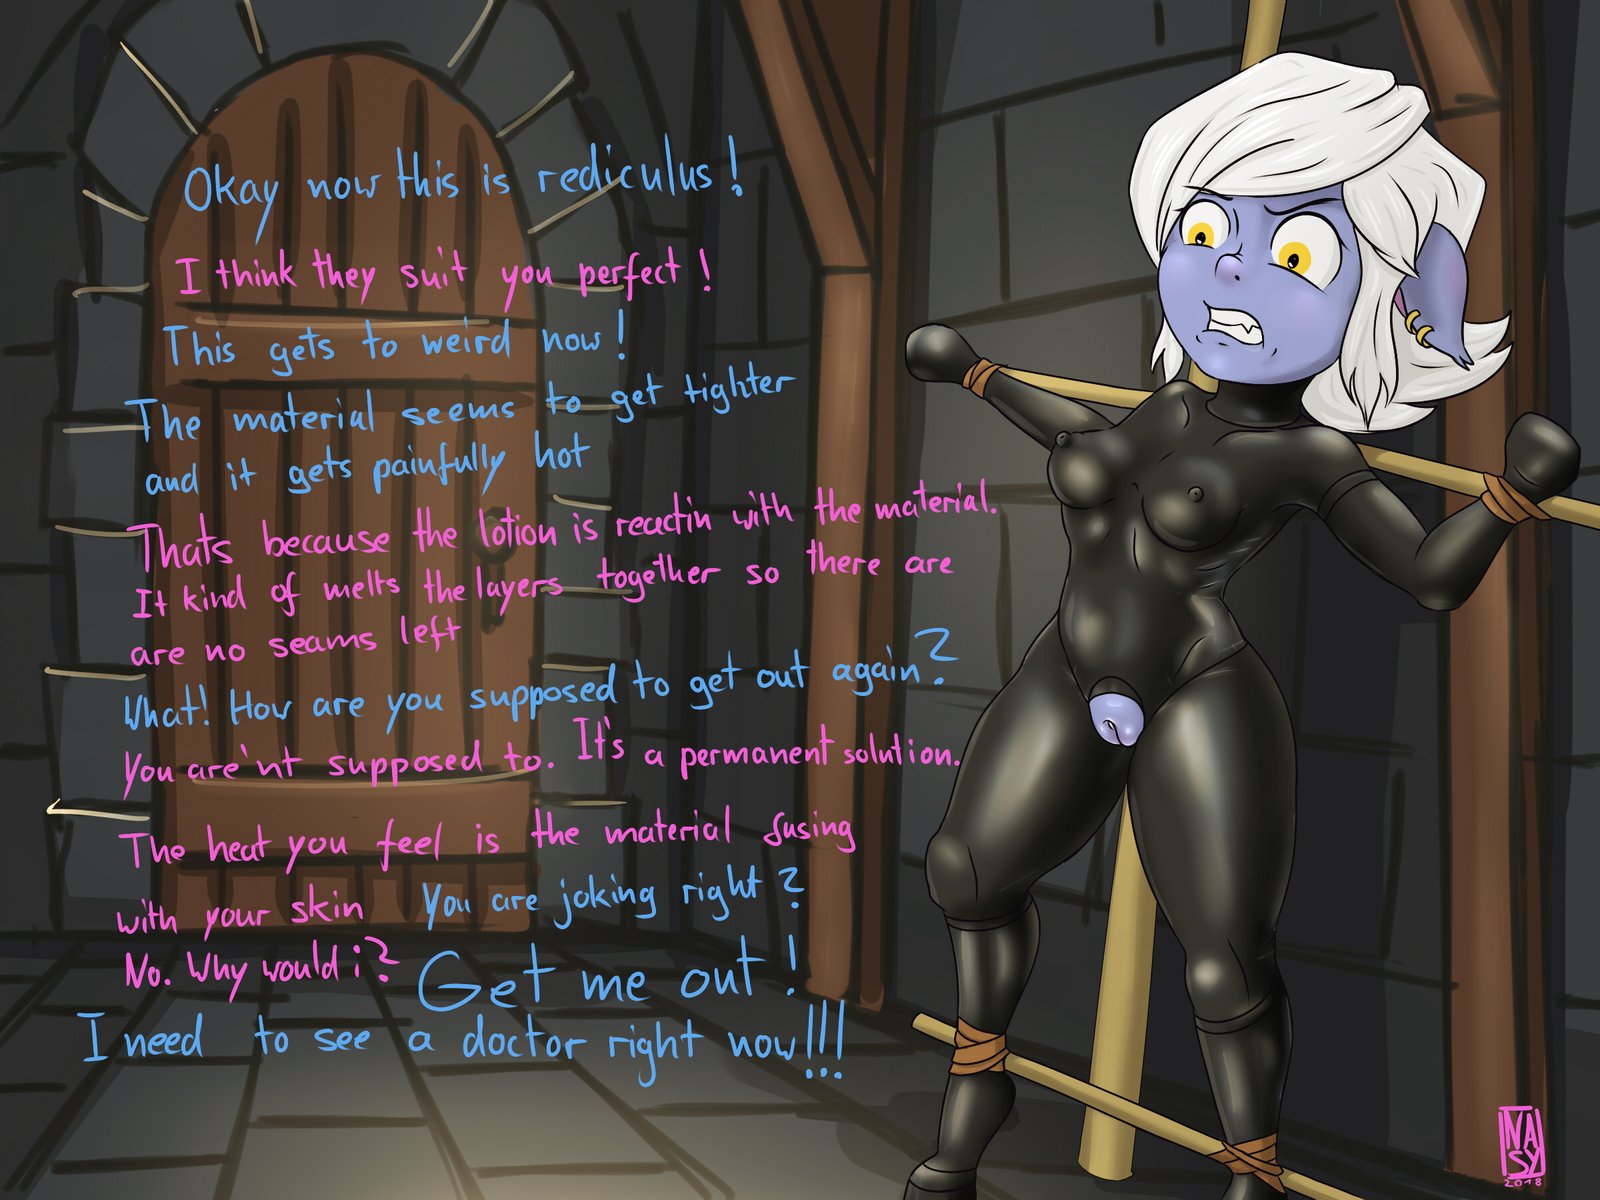 Okay now this is rediculus!
I think they suit you perfect!
This gets to weird now!
The material seems to get tighter
and it gets painfully hot
Thats because the lotion is reactin with the material.
It kind of melts the layers together so there are
are no seams left
What! How are you supposed to get out again?
You are'nt supposed to. It's a permanent solution.
The heat you feel is the material fusing
with your skin
You are joking right?
No. Why would i?
Get me out!
I need to see a doctor right now!!!
NASY
2018